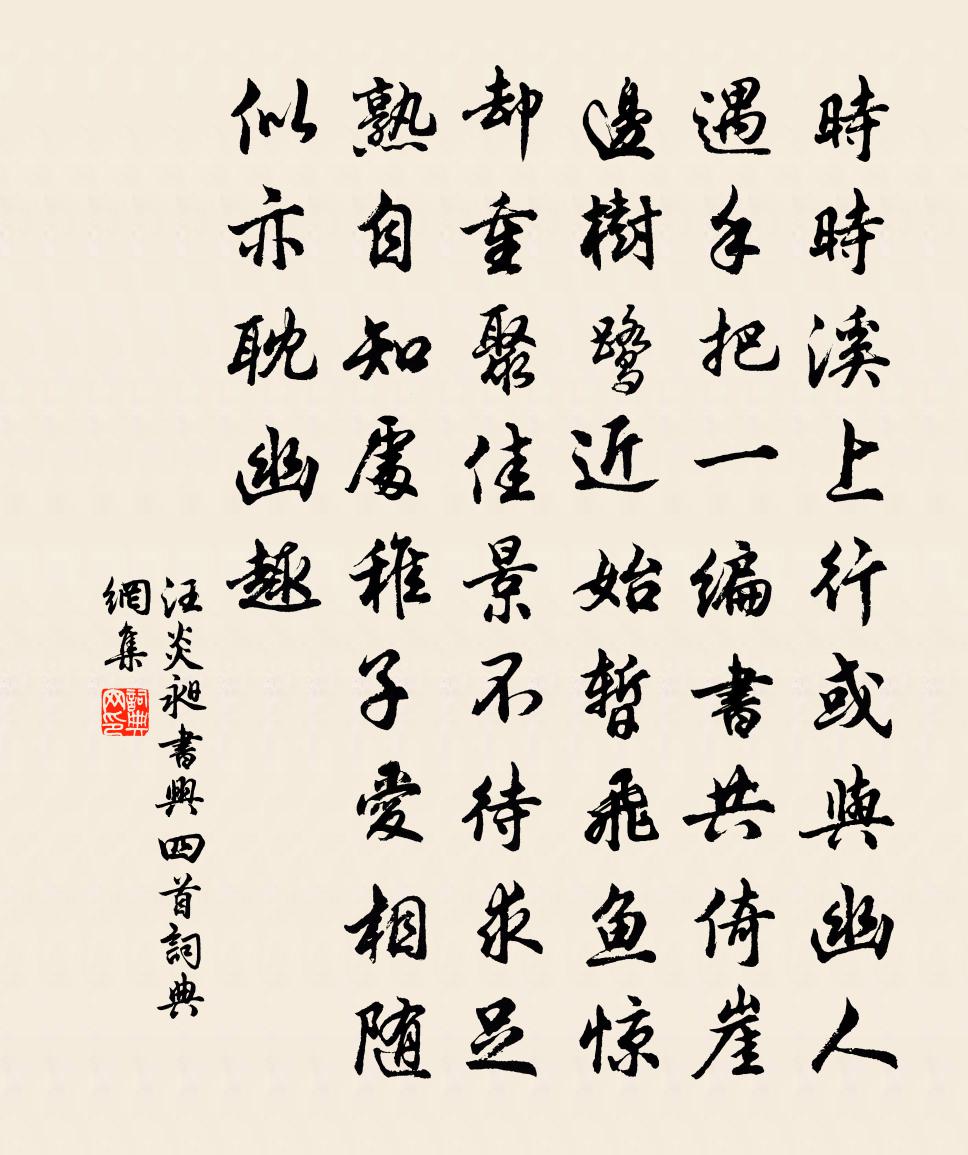 時時溪上行或與幽人
遇手把一编書共倚崖
邊樹鹭近始暫飛魚惊
却重聚佳景不待求足
熟自知處稚子愛相随
似亦耽幽趣
汪炎昶書興四首詞典
網集
詞典網印